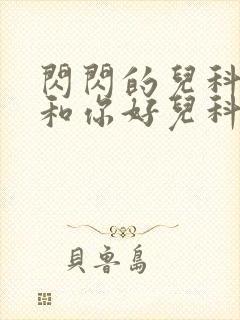 閃閃的兒科
和你好兒科
貝魯島